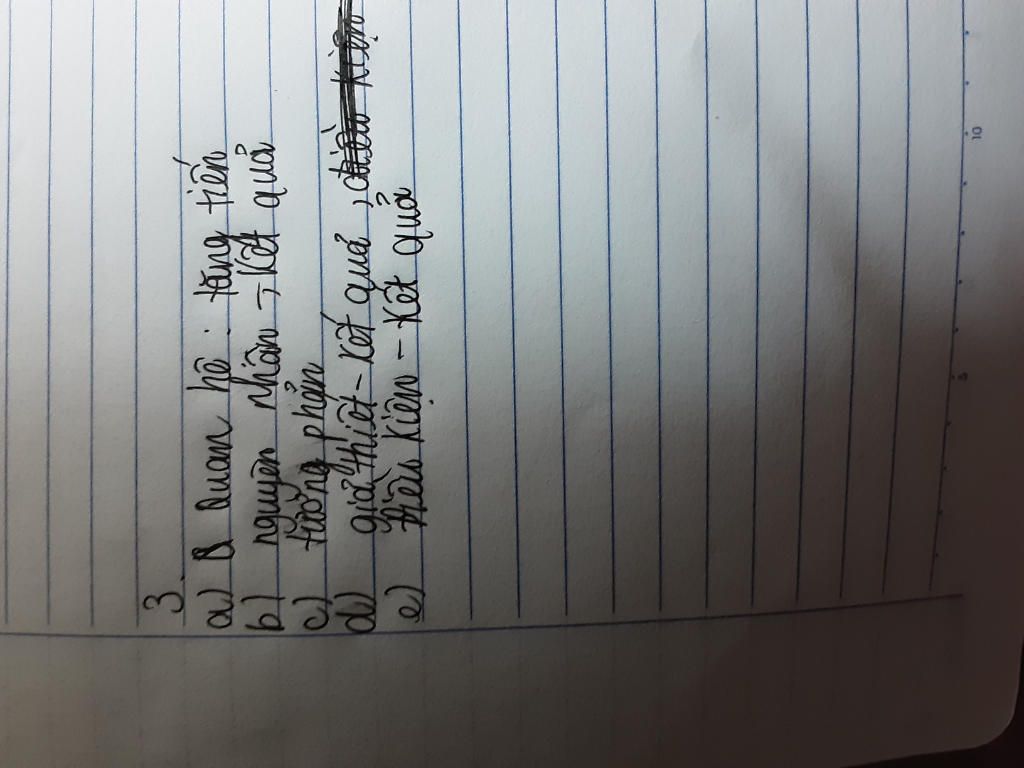 3.
a) Quan hệ : tăng tiến
b) nguyên nhân - Kết quả
c) tương phản
d) giả thiết - Kết quả, điều kiện
e) Điều kiện - Kết quả
10
8